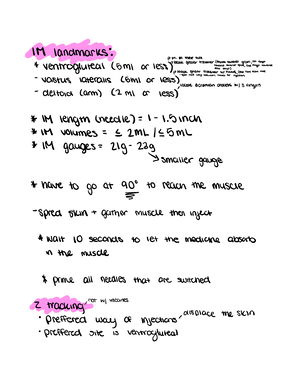 IM landmarks:
* ventrogluteal (5ml or less)
- vastus lateralis (5ml or less)
- deltoid (arm) (2 ml or less)
* IM length (needle) = 1 - 1.5 inch
* IM volumes = ≤ 2mL / ≤ 5mL
* IM gauges = 21g - 22g
smaller gauge
* have to go at 90° to reach the muscle
- spred skin + gather muscle then inject
* wait 10 seconds to let the medicine absorb
in the muscle
* prime all needles that are switched
Z tracking not w/ vaccines
• preffered way of injections displace the skin
• preffered site is ventrogluteal